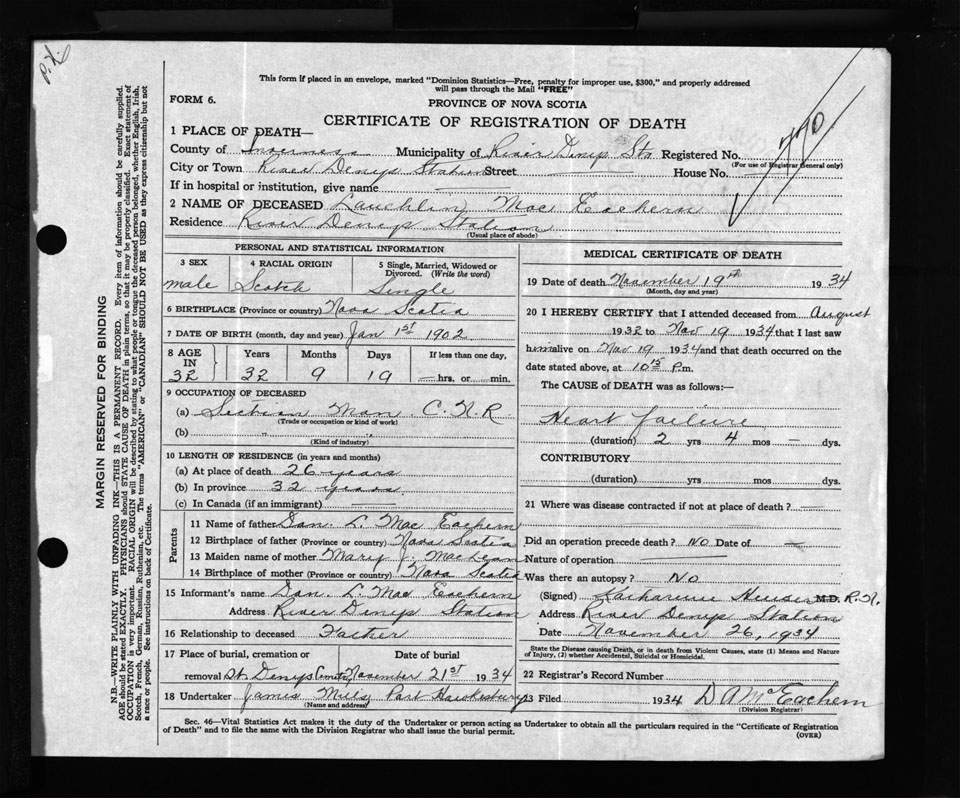 P.K.
This form if placed in an envelope, marked "Dominion Statistics—Free, penalty for improper use, $300," and properly addressed
will pass through the Mail "FREE"
FORM 6.
PROVINCE OF NOVA SCOTIA
CERTIFICATE OF REGISTRATION OF DEATH
770
1 PLACE OF DEATH—
County of Inverness Municipality of River Denys Sta Registered No.
(For use of Registrar General only)
City or Town River Denys Station Street — House No. —
If in hospital or institution, give name —
2 NAME OF DECEASED Lauchlin Mac Eachern
Residence River Denys Station
(Usual place of abode)
PERSONAL AND STATISTICAL INFORMATION
3 SEX 4 RACIAL ORIGIN 5 Single, Married, Widowed or Divorced. (Write the word)
male Scotch Single
6 BIRTHPLACE (Province or country) Nova Scotia
7 DATE OF BIRTH (month, day and year) Jan 1st 1902
8 AGE IN Years Months Days If less than one day,
32 32 9 19 — hrs. or min.
9 OCCUPATION OF DECEASED
(a) Section Man C.N.R
(Trade or occupation or kind of work)
(b) " "
(Kind of industry)
10 LENGTH OF RESIDENCE (in years and months)
(a) At place of death 26 years
(b) In province 32 years
(c) In Canada (if an immigrant)
Parents
11 Name of father Dan. L. Mac Eachern
12 Birthplace of father (Province or country) Nova Scotia
13 Maiden name of mother Mary J. MacLean
14 Birthplace of mother (Province or country) Nova Scotia
15 Informant's name Dan. L. Mac Eachern
Address River Denys Station
16 Relationship to deceased Father
17 Place of burial, cremation or Date of burial
removal St. Denys November 21st 1934
18 Undertaker James Mills Port Hawkesbury
(Name and address)
MEDICAL CERTIFICATE OF DEATH
19 Date of death November 19th 1934
(Month, day and year)
20 I HEREBY CERTIFY that I attended deceased from August
1932 to Nov 19 1934 that I last saw
him alive on Nov 19 1934 and that death occurred on the
date stated above, at 10 15 P.m.
The CAUSE of DEATH was as follows:—
Heart failure
(duration) 2 yrs 4 mos — dys.
CONTRIBUTORY
(duration) yrs. mos. dys.
21 Where was disease contracted if not at place of death? —
Did an operation precede death? No Date of —
Nature of operation —
Was there an autopsy? No
(Signed) Katharine M.D. R.N.
Address River Denys Station
Date November 26, 1934
State the Disease causing Death, or in death from Violent Causes, state (1) Means and Nature
of Injury, (2) whether Accidental, Suicidal or Homicidal.
22 Registrar's Record Number
23 Filed 1934 D A McEachern
(Division Registrar)
Sec. 46—Vital Statistics Act makes it the duty of the Undertaker or person acting as Undertaker to obtain all the particulars required in the "Certificate of Registration
of Death" and to file the same with the Division Registrar who shall issue the burial permit.
(OVER)
MARGIN RESERVED FOR BINDING
N.B.—WRITE PLAINLY WITH UNFADING INK—THIS IS A PERMANENT RECORD. Every item of information should be carefully supplied.
AGE should be stated EXACTLY. PHYSICIANS should STATE CAUSE OF DEATH in plain terms, so that it may be properly classified. Exact statement of
OCCUPATION is very important. RACIAL ORIGIN will be described by stating to what people or tongue the deceased person belonged, whether English, Irish,
Scotch, French, German, Russian, Ruthenian, etc. The terms "AMERICAN" or "CANADIAN" SHOULD NOT BE USED as they express citizenship but not
a race or people. See instructions on back of Certificate.